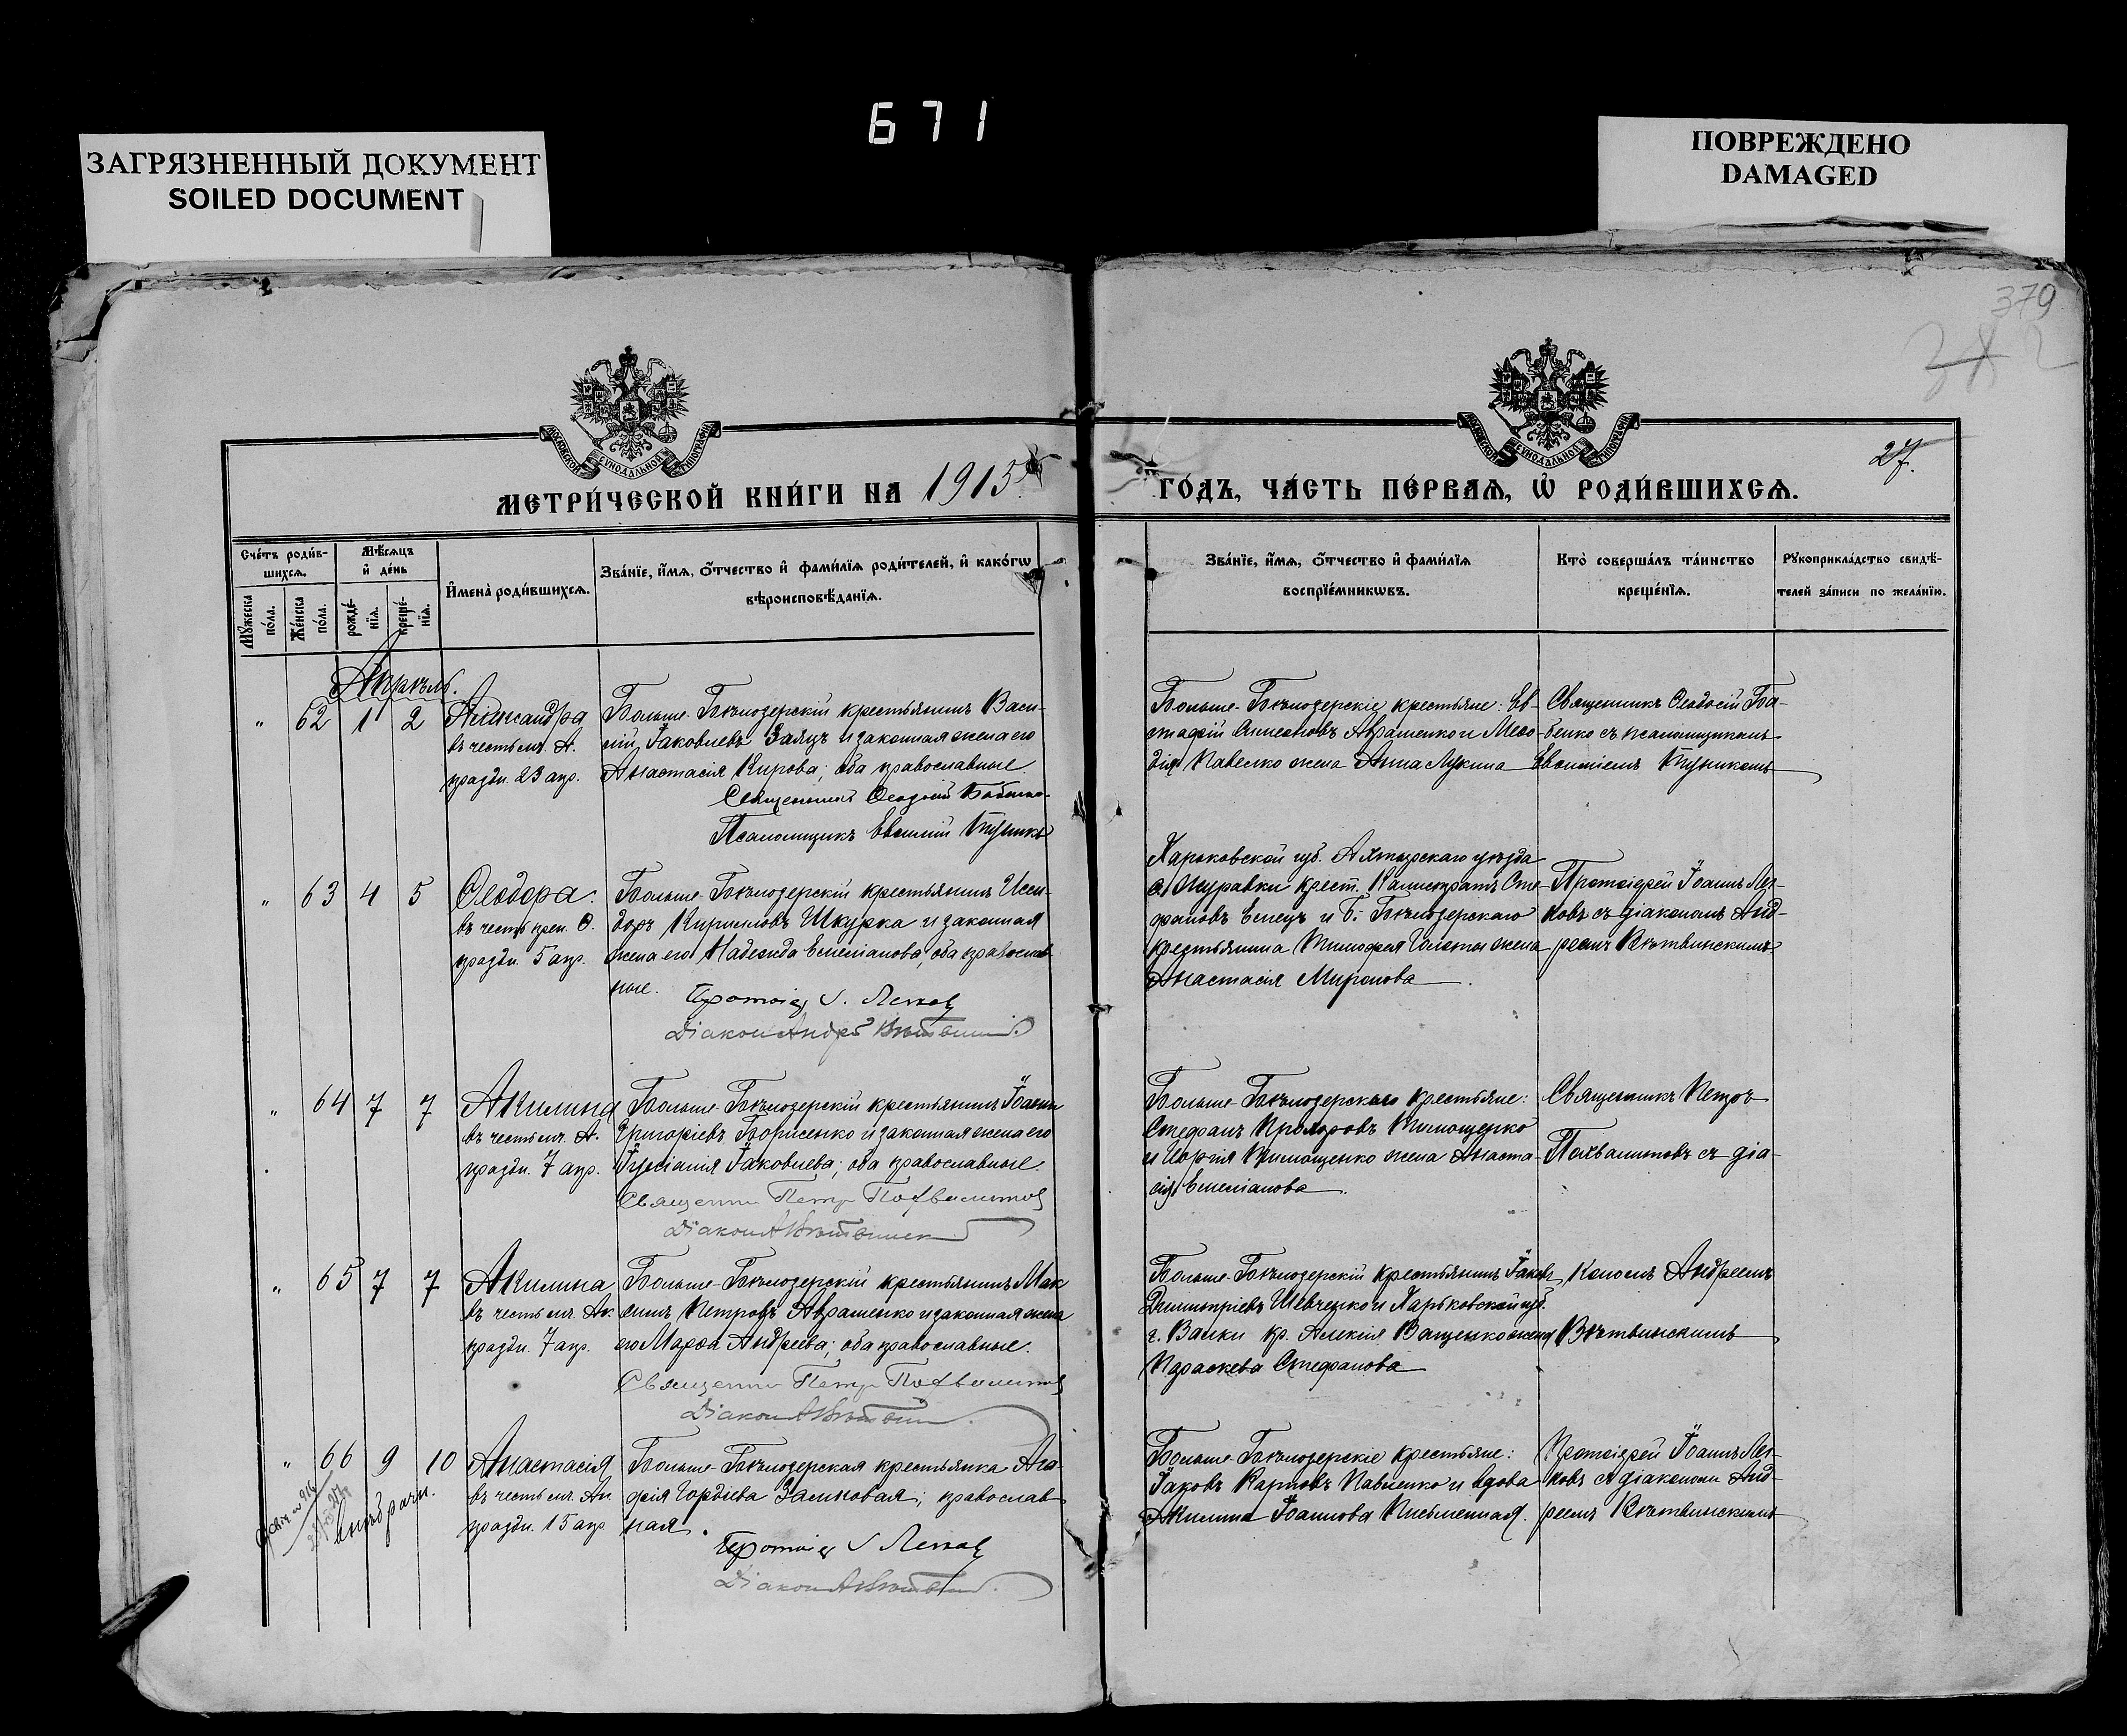 671
ЗАГРЯЗНЕННЫЙ ДОКУМЕНТ
SOILED DOCUMENT
ПОВРЕЖДЕНО
DAMAGED
379
27.
МОСКОВСКОЙ СѴНОДАЛЬНОЙ ТИПОГРАФІИ
МОСКОВСКОЙ СѴНОДАЛЬНОЙ ТИПОГРАФІИ
МЕТРИ́ЧЕСКОЙ КНИ́ГИ НА 1915
ГО́ДЪ, ЧА́СТЬ ПЕ́РВАѦ, Ѡ҆ РОДИ́ВШИХСѦ.
Сче́тъ роди́в-
шихсѧ.
Мѣ́сѧцъ
и҆ де́нь
Мꙋ́жеска
по́ла.
Же́нска
по́ла.
рожде́-
нїѧ.
креще́-
нїѧ.
И҆мена̀ роди́вшихсѧ.
Зва́нїе, и҆́мѧ, ѻ҆́тчество и҆ фами́лїѧ роди́телей, и҆ како́гѡ
вѣроисповѣ́данїѧ.
Зва́нїе, и҆́мѧ, ѻ҆́тчество и҆ фами́лїѧ
воспрїе́мникѡвъ.
Кто̀ соверша́лъ та́инство
креще́нїѧ.
Рꙋкоприкла́дство свидѣ́-
телей за́писи по жела́нїю.
Апрѣль.
" 62 1 2 Александра
въ честь мч. А.
праздн. 23 апр.
Больше-Бѣлозерскій крестьянинъ Васи-
лій Іаковлевъ Заяцъ и законная жена его
Анастасія Кирова; оба православные
Священникъ Ѳеодосій Бабенко
Псаломщикъ Евсимій Ступникъ
Больше-Бѣлозерскіе крестьяне: Ев-
стафій Симеоновъ Авраменко и Меѳо-
дія Павелко жена Анна Лукина
Священникъ Ѳеодосій Ба-
бенко съ псаломщикомъ
" 63 4 5 Ѳеодора.
въ честь преп. Ѳ.
праздн. 5 апр.
Больше-Бѣлозерскій крестьянинъ Иси-
доръ Кирилловъ Шкурка и законная
жена его Надежда Емеліанова; оба православ
ные.
Протоіер І. Лехов
Діакон Андрей Вѣтвинскій
Харьковской губ. Ахтырскаго уѣзда
с. Журавки крест. Каллистратъ Сте-
фановъ Емецъ и Б. Бѣлозерскаго
крестьянина Тимофея Голоты жена
Анастасія Миронова
Протоіерей Іоаннъ Лех-
ковъ съ діакономъ Анд-
реемъ Вѣтвинскимъ
" 64 7 7 Акилина
въ честь мч. А.
праздн. 7 апр.
Больше-Бѣлозерскій крестьянинъ Іоаннъ
Григоріевъ Борисенко и законная жена его
Іуліанія Іаковлева; оба православные.
Священник Петр Похвалитов
Діакон А Вѣтвинск
Больше-Бѣлозерскаго крестьяне:
Стефанъ Прохоровъ Тимощенко
и Георгія Тимощенко жена Анаста-
сія Емеліанова
Священникъ Петръ
Похвалитовъ съ діа-
" 65 7 7 Акилина
въ честь мч. Ак.
праздн. 7 апр.
Больше-Бѣлозерскій крестьянинъ Мак
симъ Петровъ Авраменко и законная жена
его Марѳа Андреева; оба православные.
Священник Петр Похвалитов
Діакон А Вѣтвин
Больше-Бѣлозерскій крестьянинъ Іаковъ
Димитріевъ Шевченко и Харьковской губ.
г. Валки кр. Алексія Ващенко жена
Параскева Стефанова
кономъ Андреемъ
Вѣтвинскимъ
" 66 9 10 Анастасія
въ честь мч. Ан.
праздн. 15 апр.
внѣбрачн.
Больше-Бѣлозерская крестьянка Ага-
фія Гордіева Залиховая; православ
ная.
Протоіер І Лехов
Діакон А Вѣтвин
Больше-Бѣлозерскіе крестьяне:
Іаковъ Карповъ Павленко и вдова
Акилина Іоаннова Письменная.
Протоіерей Іоаннъ Лех-
ковъ съ діакономъ Анд-
реемъ Вѣтвинскимъ